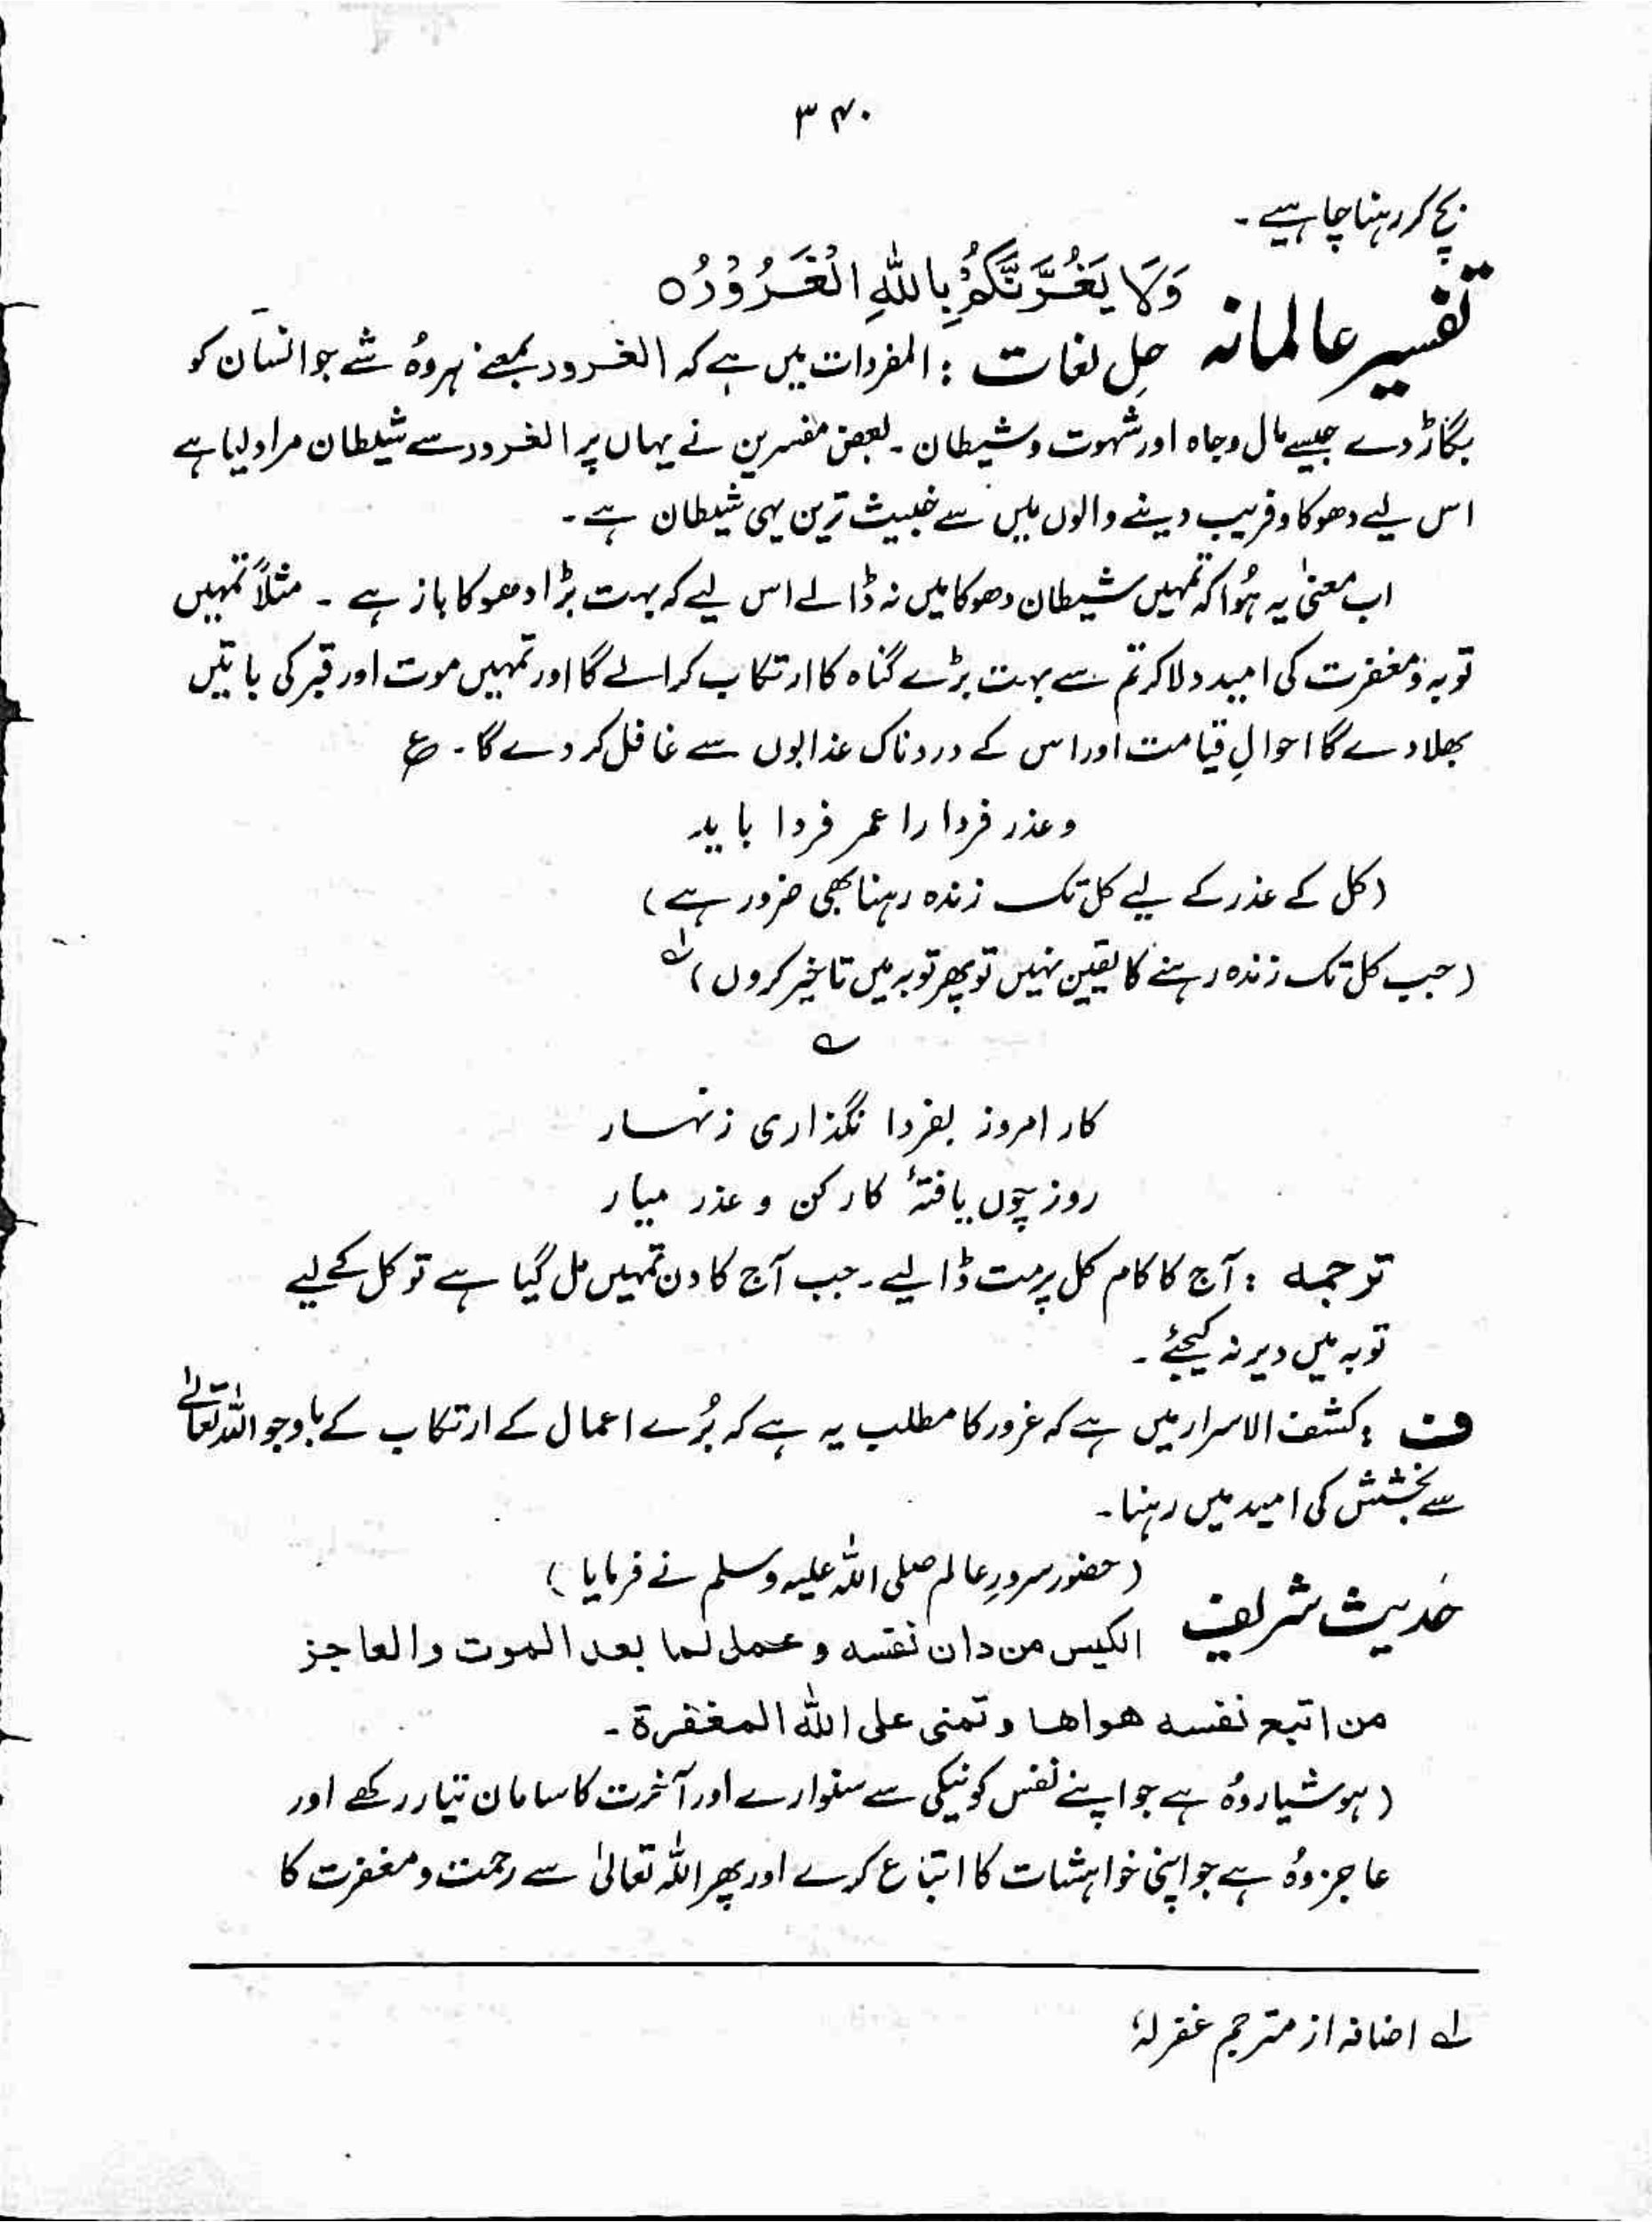 ۳۴۰
بچ کر رہنا چاہیے۔
تفسیر عالمانہ وَلَا يَغُرَّنَّكُمْ بِاللّٰهِ الْغَرُوْرُ ۝
حلِ لغات : المفردات میں ہے کہ الغرور بمعنے ہر وہُ شے جو انسان کو
بگاڑ دے جیسے مال و جاہ اور شہوت و شیطان ۔ بعض مفسرین نے یہاں پر الغرور سے شیطان مراد لیا ہے
اس لیے دھوکا و فریب دینے والوں میں سے خبیث ترین یہی شیطان ہے ۔
اب معنیٰ یہ ہُوا کہ تمہیں شیطان دھوکا میں نہ ڈالے اس لیے کہ بہت بڑا دھوکا باز ہے ۔ مثلاً تمہیں
توبہ و مغفرت کی امید دلا کر تم سے بہت بڑے گناہ کا ارتکاب کرائے گا اور تمہیں موت اور قبر کی باتیں
بھلا دے گا احوالِ قیامت اور اس کے دردناک عذابوں سے غافل کر دے گا ۔ ع
و عذر فردا را عمر فردا باید
(کل کے عذر کے لیے کل تک زندہ رہنا بھی ضرور ہے)
(جب کل تک زندہ رہنے کا یقین نہیں تو پھر توبہ میں تاخیر کروں) لہ
؎
کار امروز بفردا نگذاری زنہار
روز چوں یافتۂ کار کن و عذر میار
ترجمہ : آج کا کام کل پر مت ڈالیے ۔ جب آج کا دن تمہیں مل گیا ہے تو کل کے لیے
توبہ میں دیر نہ کیجئے ۔
ف : کشف الاسرار میں ہے کہ غرور کا مطلب یہ ہے کہ بُرے اعمال کے ارتکاب کے باوجو اللہ تعالیٰ
سے بخشش کی امید میں رہنا ۔
حدیث شریف (حضور سرورِ عالم صلی اللہ علیہ وسلم نے فرمایا)
الکیس من دان نفسه و عمل لما بعد الموت والعاجز
من اتبع نفسه هواها و تمنی علی اللہ المغفرة ۔
(ہوشیار وہُ ہے جو اپنے نفس کو نیکی سے سنوارے اور آخرت کا سامان تیار رکھے اور
عاجز وہُ ہے جو اپنی خواہشات کا اتباع کرے اور پھر اللہ تعالیٰ سے رحمت و مغفرت کا
لہ اضافہ از مترجم غفرلہٗ